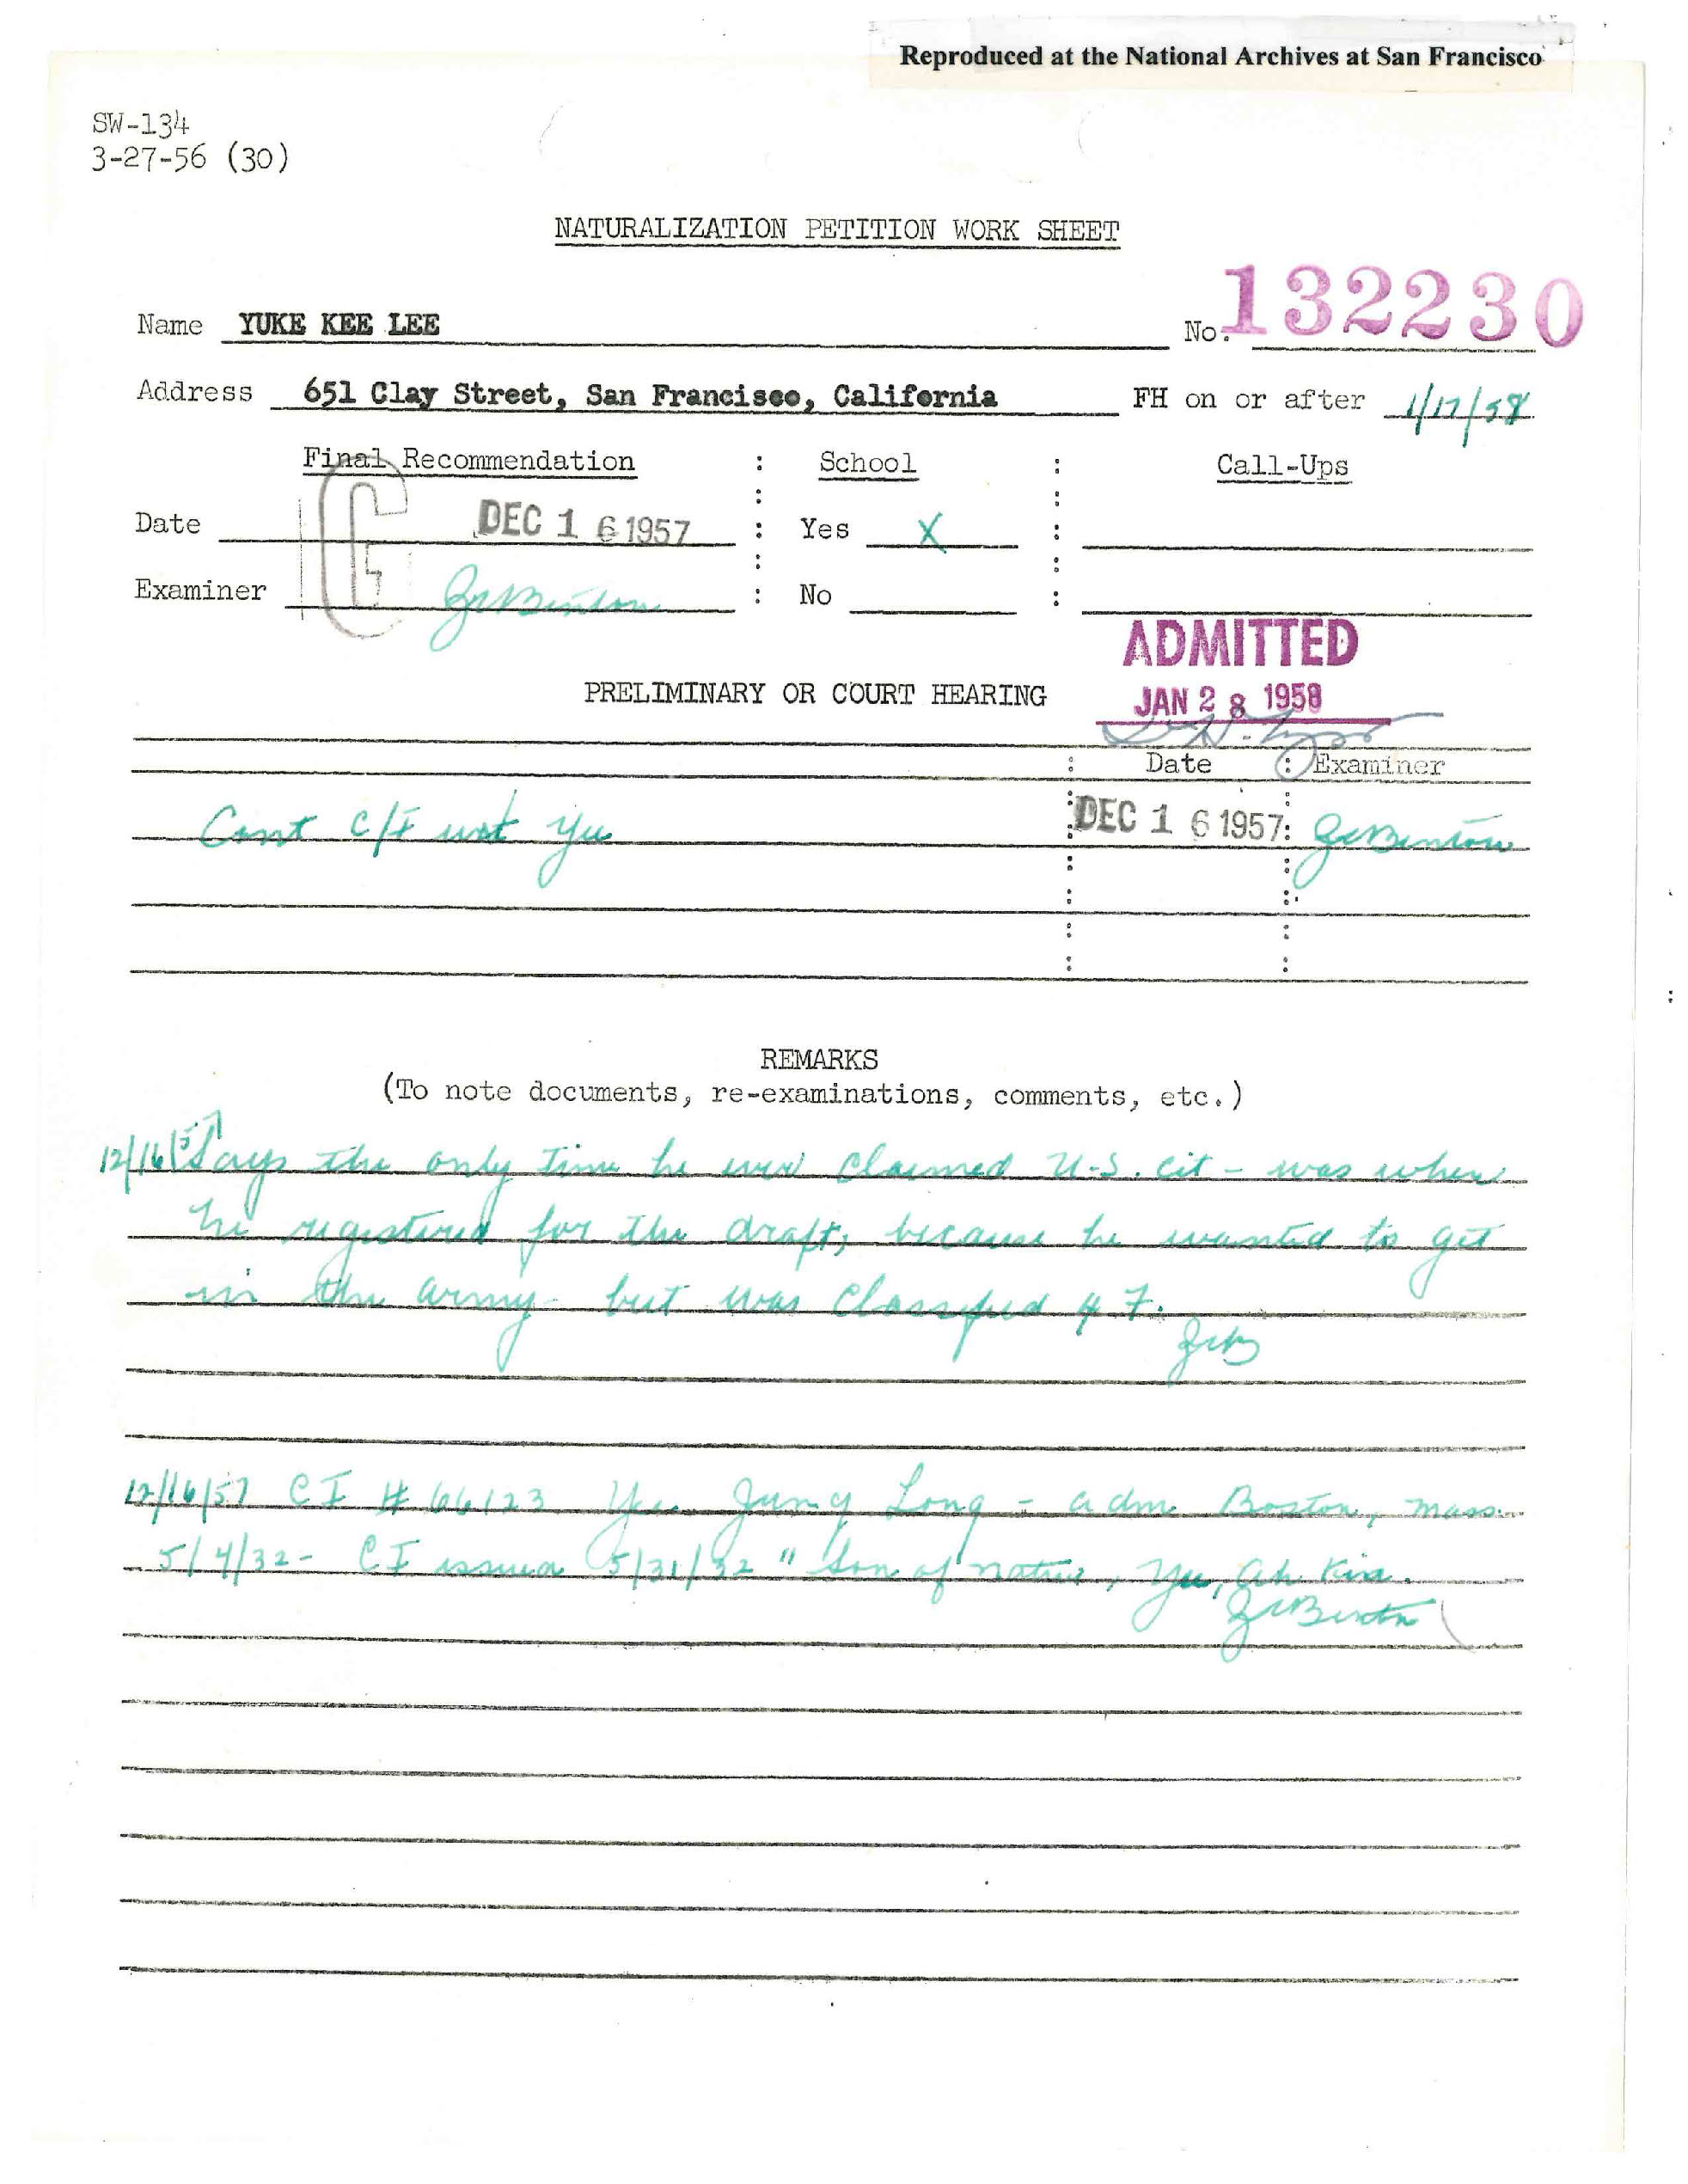 Reproduced at the National Archives at San Francisco
SW-134
3-27-56 (30)
NATURALIZATION PETITION WORK SHEET
Name YUKE KEE LEE No. 132230
Address 651 Clay Street, San Francisco, California FH on or after 1/17/58
Final Recommendation : School : Call-Ups
Date DEC 16 1957 : Yes X :
Examiner : No :
G
ADMITTED
PRELIMINARY OR COURT HEARING JAN 28 1958
: Date : Examiner
Cont C/I Yee :DEC 16 1957:
REMARKS
(To note documents, re-examinations, comments, etc.)
12/16/57 Says the only time he ever claimed U.S. cit - was when
he registered for the draft, because he wanted to get
in the army - but was classified 4 F.
12/16/57 CI # 66123 Yee Jung Long - adm Boston, Mass.
5/4/32 - CI issued 5/31/32 " Son of native, Yee, Ah